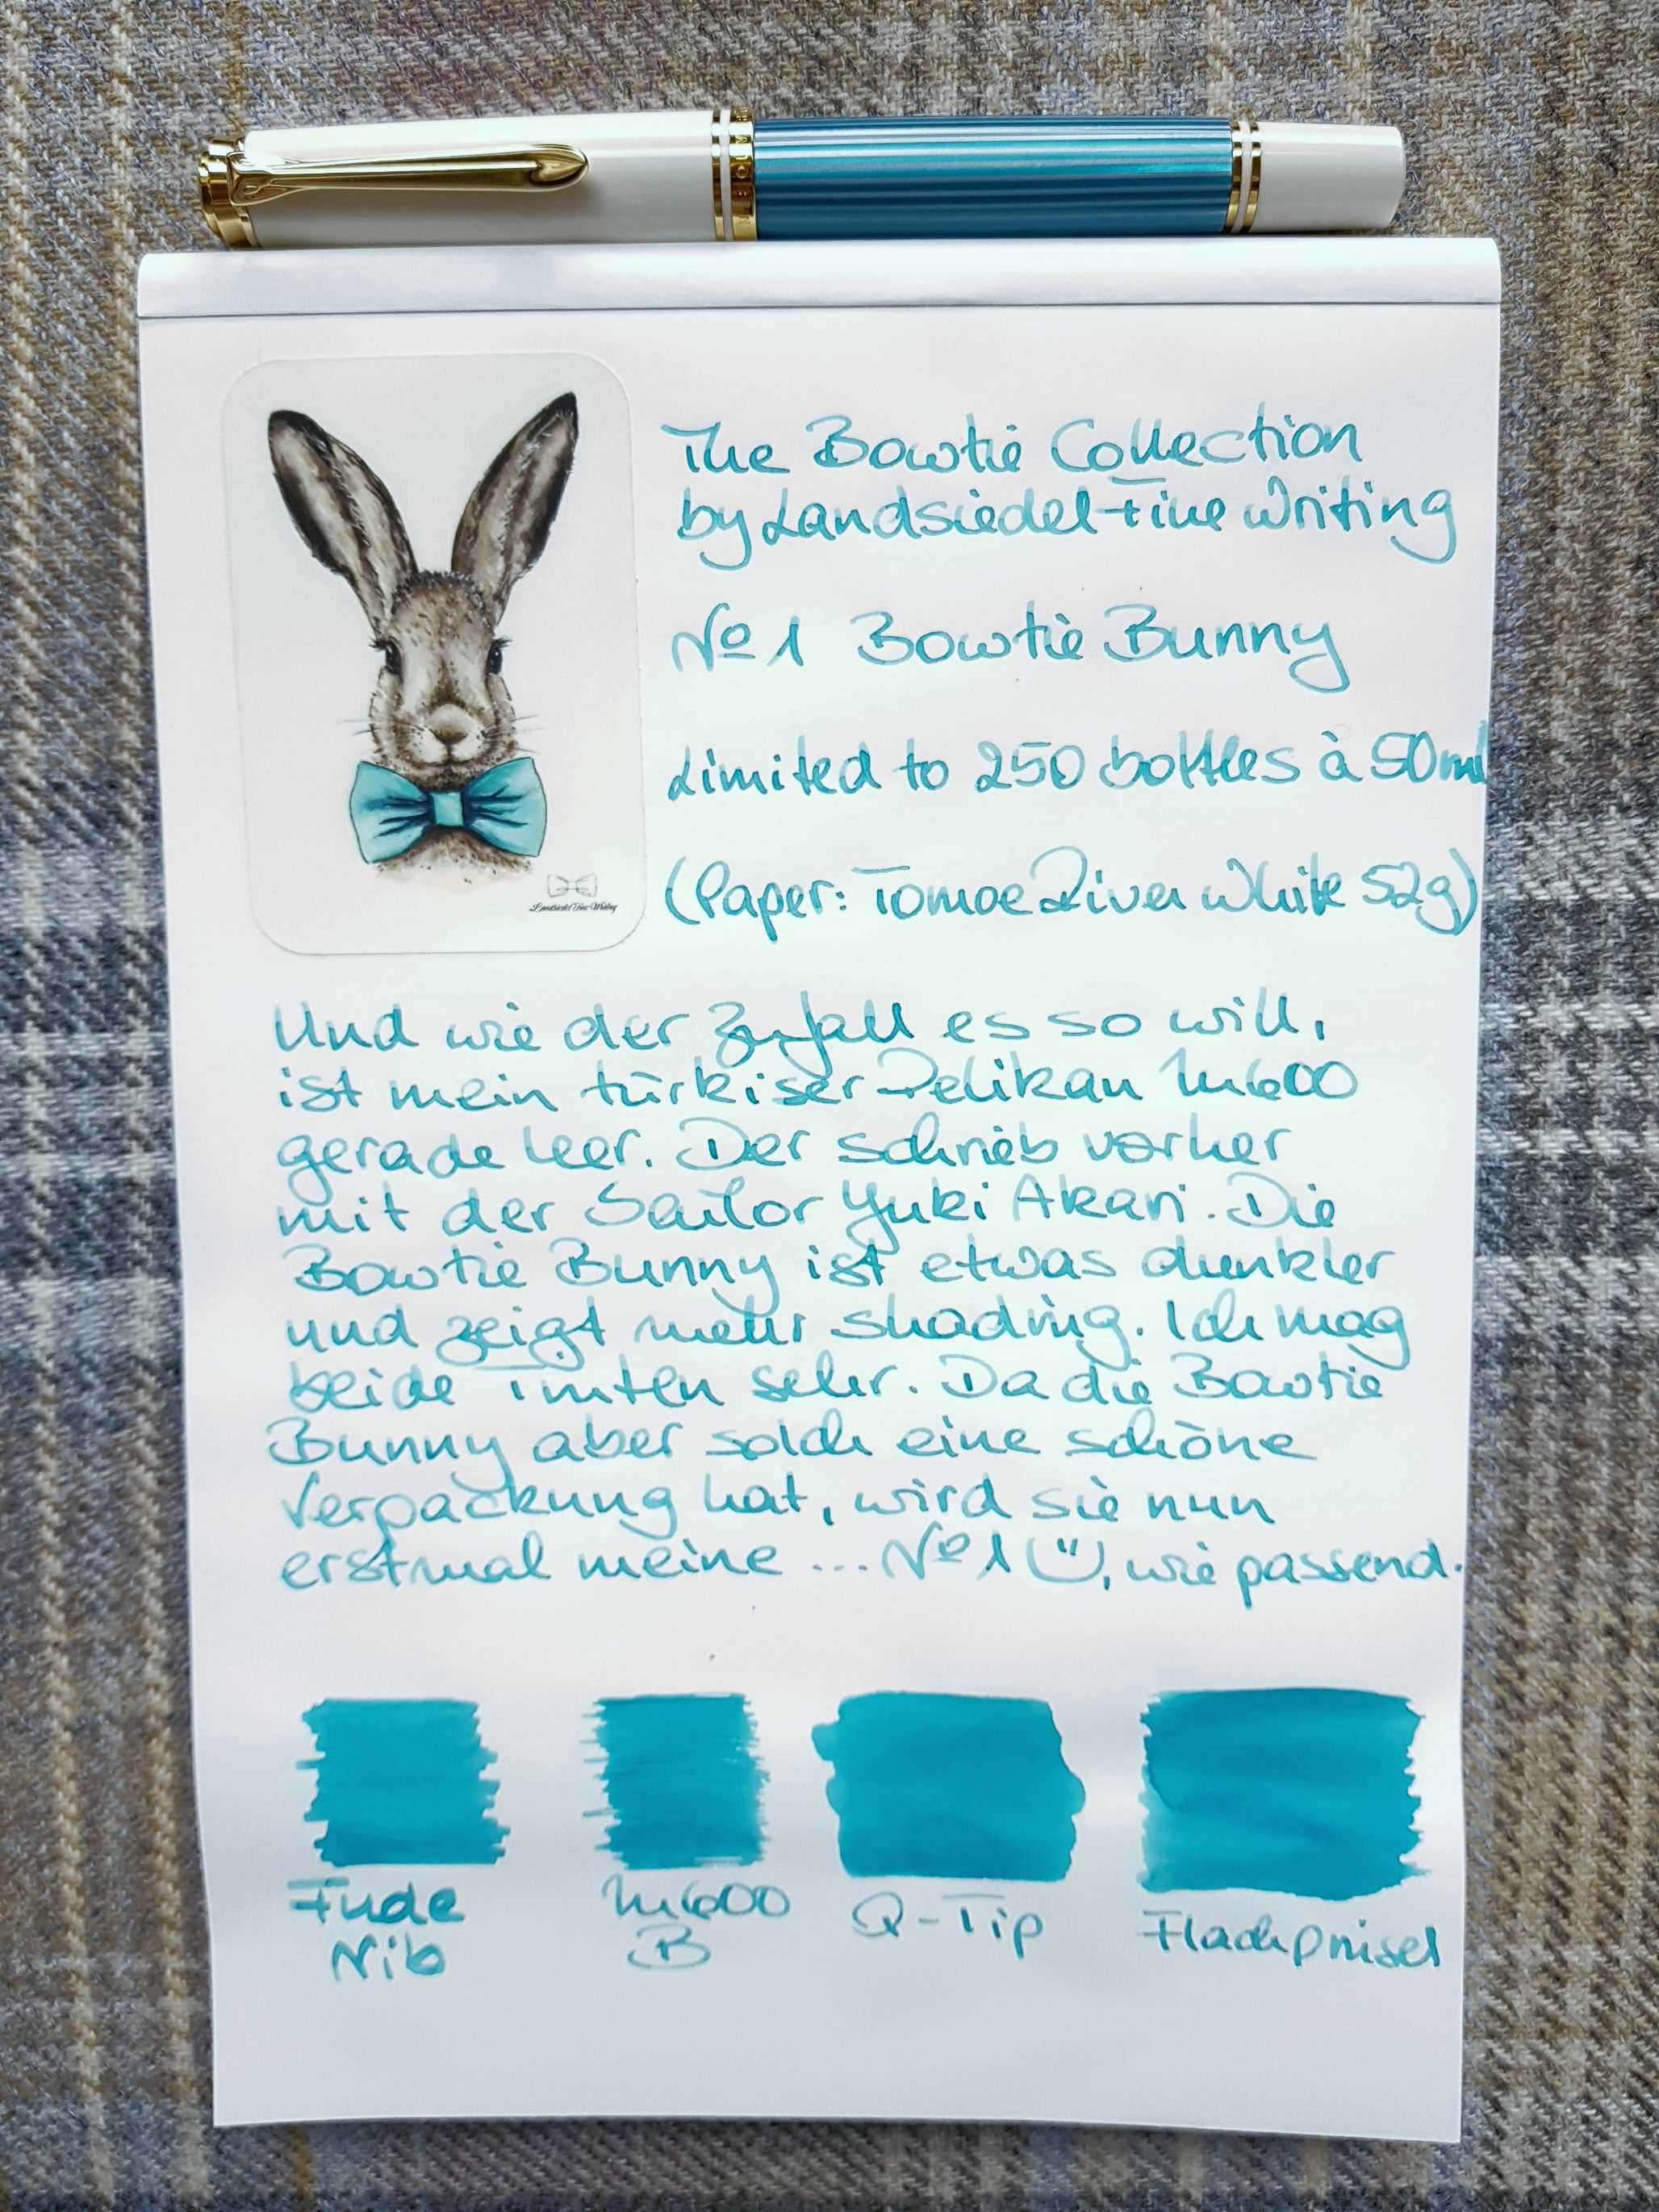 The Bowtie Collection
by Landsiedel Fine Writing
No 1 Bowtie Bunny
Limited to 250 bottles à 50ml
(Paper: Tomoe River White 52g)
Landsiedel Fine Writing
Und wie der Zufall es so will,
ist mein türkiser Pelikan M600
gerade leer. Der schrieb vorher
mit der Sailor Yuki Akari. Die
Bowtie Bunny ist etwas dunkler
und zeigt mehr shading. Ich mag
beide Tinten sehr. Da die Bowtie
Bunny aber solch eine schöne
Verpackung hat, wird sie nun
erstmal meine ... No 1 ü, wie passend.
Fude
Nib
M600
B
Q-Tip
Flachpinsel